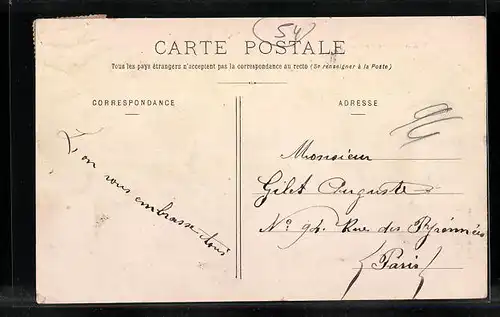 54
CARTE POSTALE
Tous les pays étrangers n'acceptent pas la correspondance au recto (Se renseigner à la Poste)
CORRESPONDANCE
ADRESSE
L'on vous embrasse tous
Monsieur
Gilet Auguste
N° 94. Rue des Pyrénnées
(Paris)